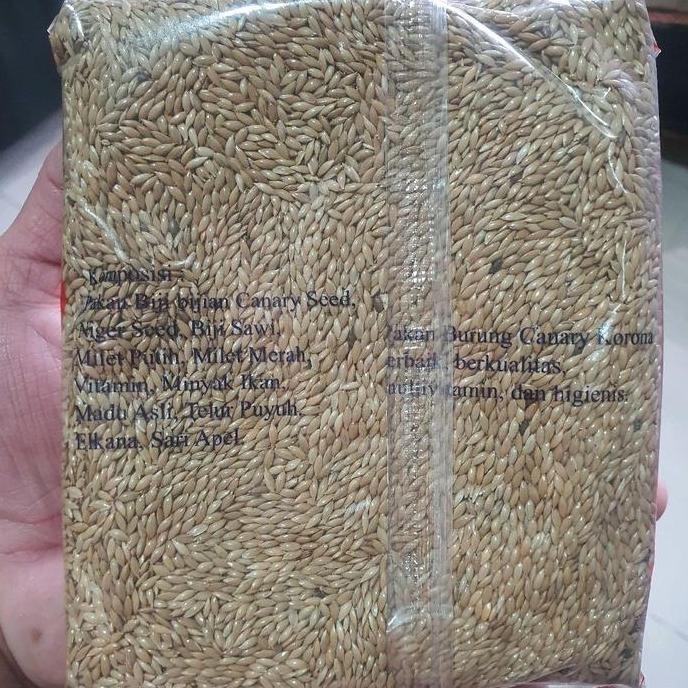 Komposisi :
Pakan Biji bijian Canary Seed,
Niger Seed, Biji Sawi,
Milet Putih, Milet Merah,
Vitamin, Minyak Ikan,
Madu Asli, Telur Puyuh,
Elkana, Sari Apel.
Pakan Burung Canary Korona
terbaik, berkualitas,
multivitamin, dan higienis.